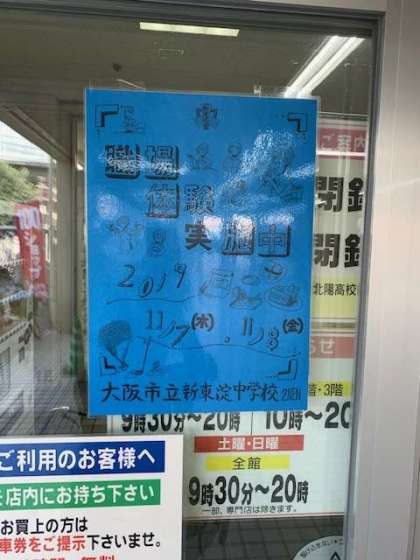 職場
体験
実施中
2019
11/7(木)、11/8(金)
大阪市立新東淀中学校
ご案内
閉鎖
閉鎖
北陽高校
ショップ
階・3階
9時30分～20時
10時～20
土曜・日曜
全館
9時30分～20時
一部、専門店は除きます。
ご利用のお客様へ
店内にお持ち下さい
お買上の方は
車券をご提示下さいませ。